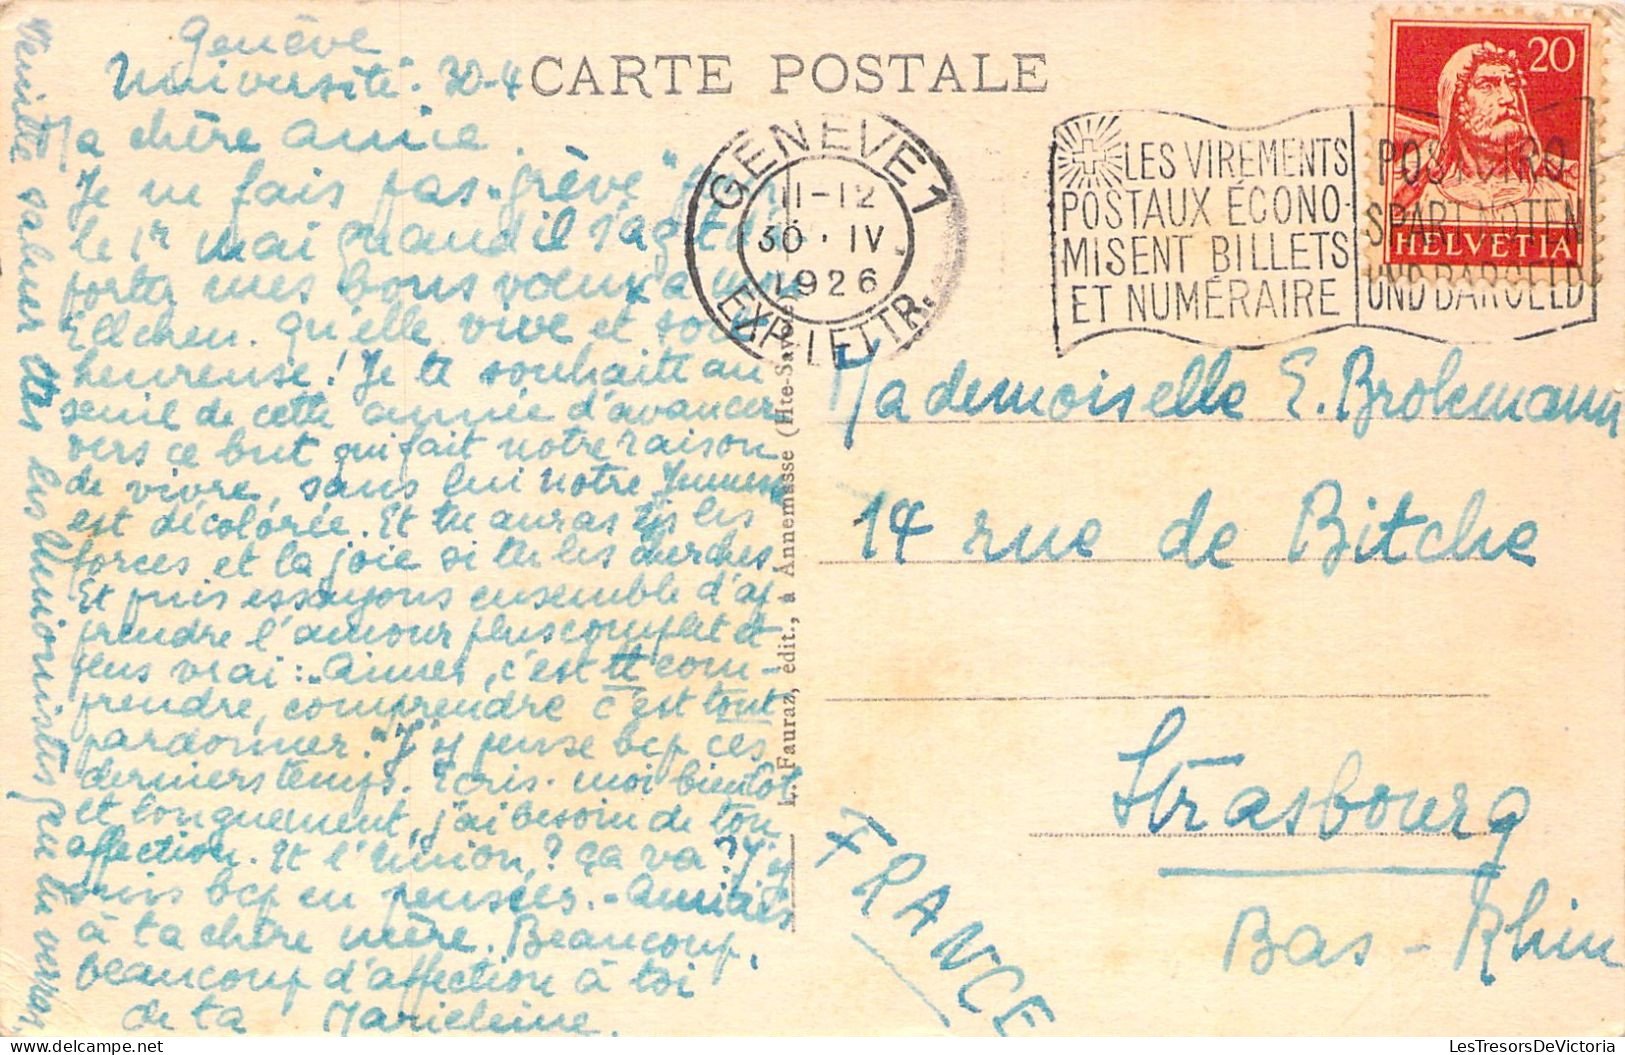 CARTE POSTALE
Genève
Université. 30-4
Ma chère amie.
Je ne fais pas "grève"
le 1er mai quand il s'agit de
porter mes bons vœux à une
Ellchen. qu'elle vive et soit
heureuse! Je te souhaite au
seuil de cette année d'avancer
vers ce but qui fait notre raison
de vivre, sans lui notre Jeunesse
est décolorée. Et tu auras tjs les
forces et la joie si tu les cherches.
Et puis essayons ensemble d'ap
prendre l'amour plus complet et
plus vrai: "Aimer, c'est tt com-
prendre, comprendre c'est tout
pardonner." J'y pense bcp ces
derniers temps. Ecris-moi bientôt
et longuement, j'ai besoin de ton
affection. Et l'Union? ça va? J'y
suis bcp en pensées. - Amitiés
à ta chère mère. Beaucoup,
beaucoup d'affection à toi
de ta Marieleine.
saluer ttes les Unionistes que tu verras.
L. Fauraz, édit., à Annemasse (Hte-Savoie)
GENÈVE 1
11-12
30. IV
1926
EXP. LETTR.
LES VIREMENTS
POSTAUX ÉCONO-
MISENT BILLETS
ET NUMÉRAIRE
POSTGIRO
SPART NOTEN
UND BARGELD
20
HELVETIA
Mademoiselle E. Brokmann
14 rue de Bitche
Strasbourg
Bas-Rhin
FRANCE
LesTresorsDeVictoria.com